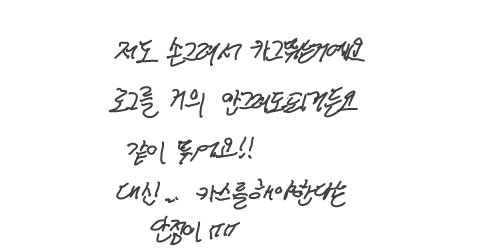 저도 손그려서 카그뛰는거예요
로그를 거의 안그려도되거든요
같이 뛰어요!!
대신... 카스를해야한다는
단점이ㅠㅠ